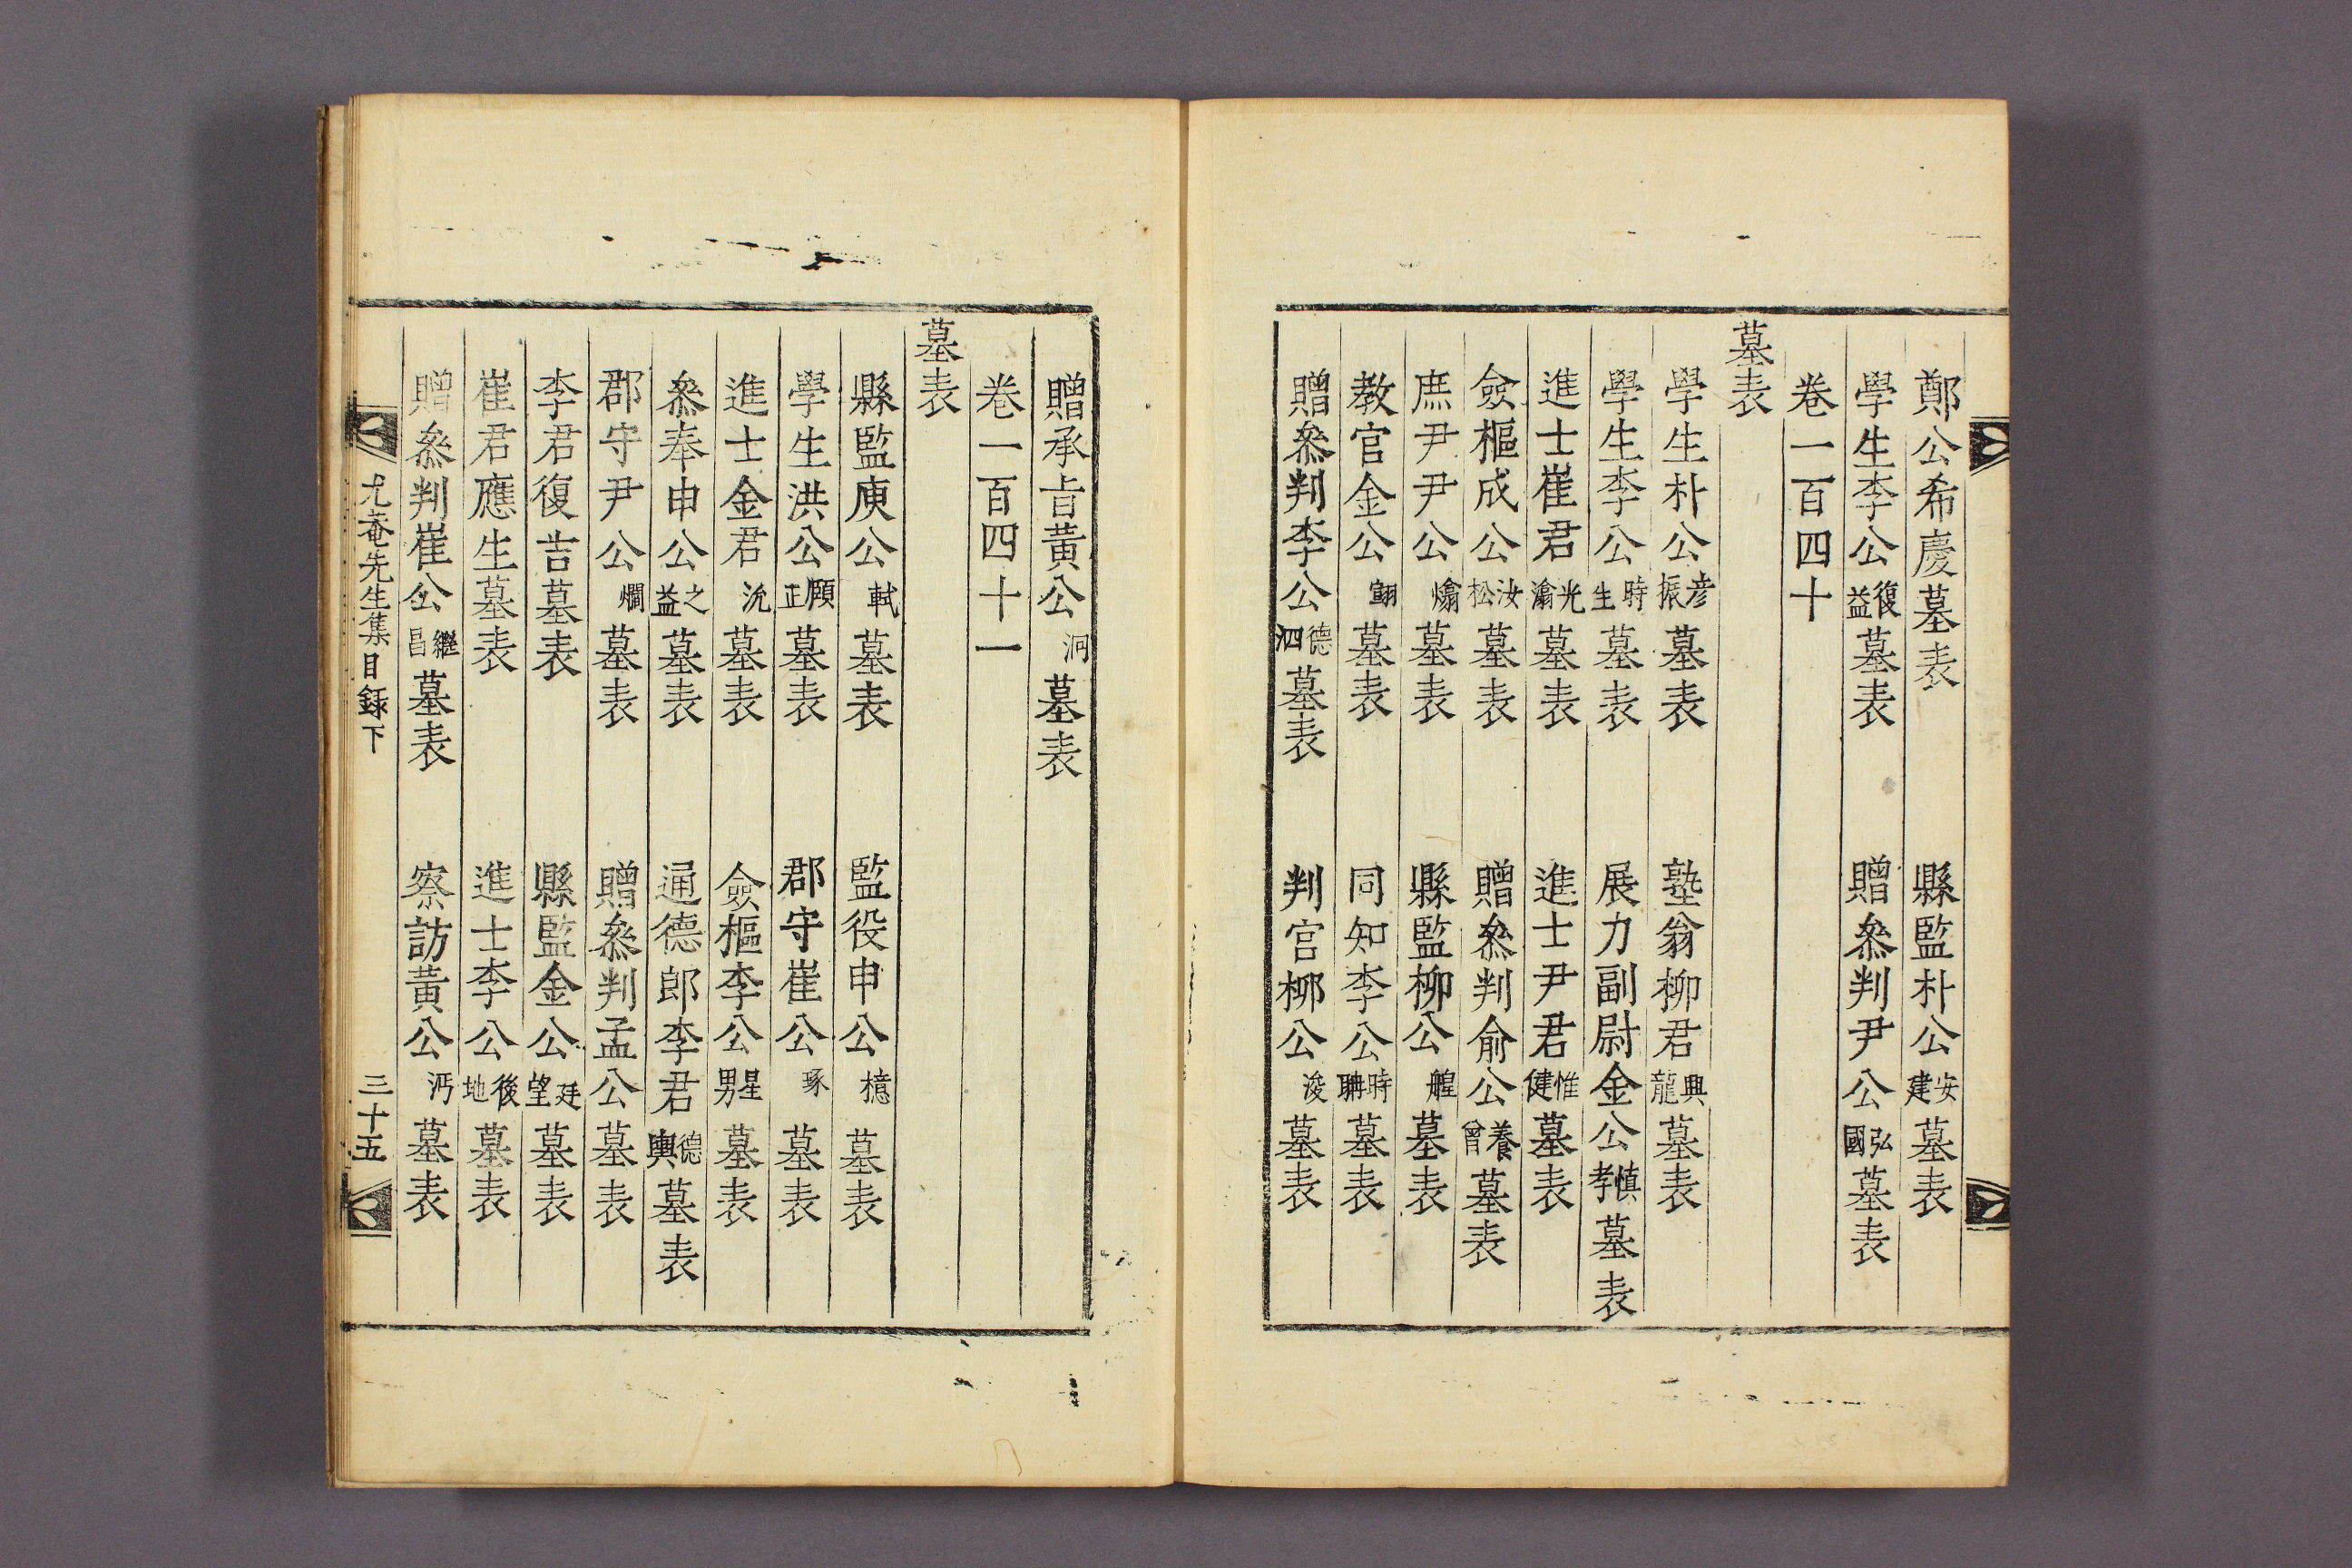 鄭公希慶墓表 縣監朴公安建墓表
學生李公復益墓表 贈叅判尹公弘國墓表
卷一百四十
墓表
學生朴公彦振墓表 塾翁柳君興龍墓表
學生李公時生墓表 展力副尉金公愼孝墓表
進士崔君光瀹墓表 進士尹君惟健墓表
僉樞成公汝松墓表 贈叅判俞公養曾墓表
庶尹尹公㷍墓表 縣監柳公艎墓表
教官金公墓表 同知李公時聃墓表
贈叅判李公德泗墓表 判官柳公浚墓表
贈承旨黃公泂墓表
卷一百四十一
墓表
縣監庾公軾墓表 監役申公檍墓表
學生洪公顧正墓表 郡守崔公琢墓表
進士金君沇墓表 僉樞李公星男墓表
叅奉申公之益墓表 通德郎李君德輿墓表
郡守尹公燗墓表 贈叅判孟公墓表
李君復吉墓表 縣監金公廷望墓表
崔君應生墓表 進士李公後地墓表
贈叅判崔公繼昌墓表 察訪黃公沔墓表
尤菴先生集目録下 三十五